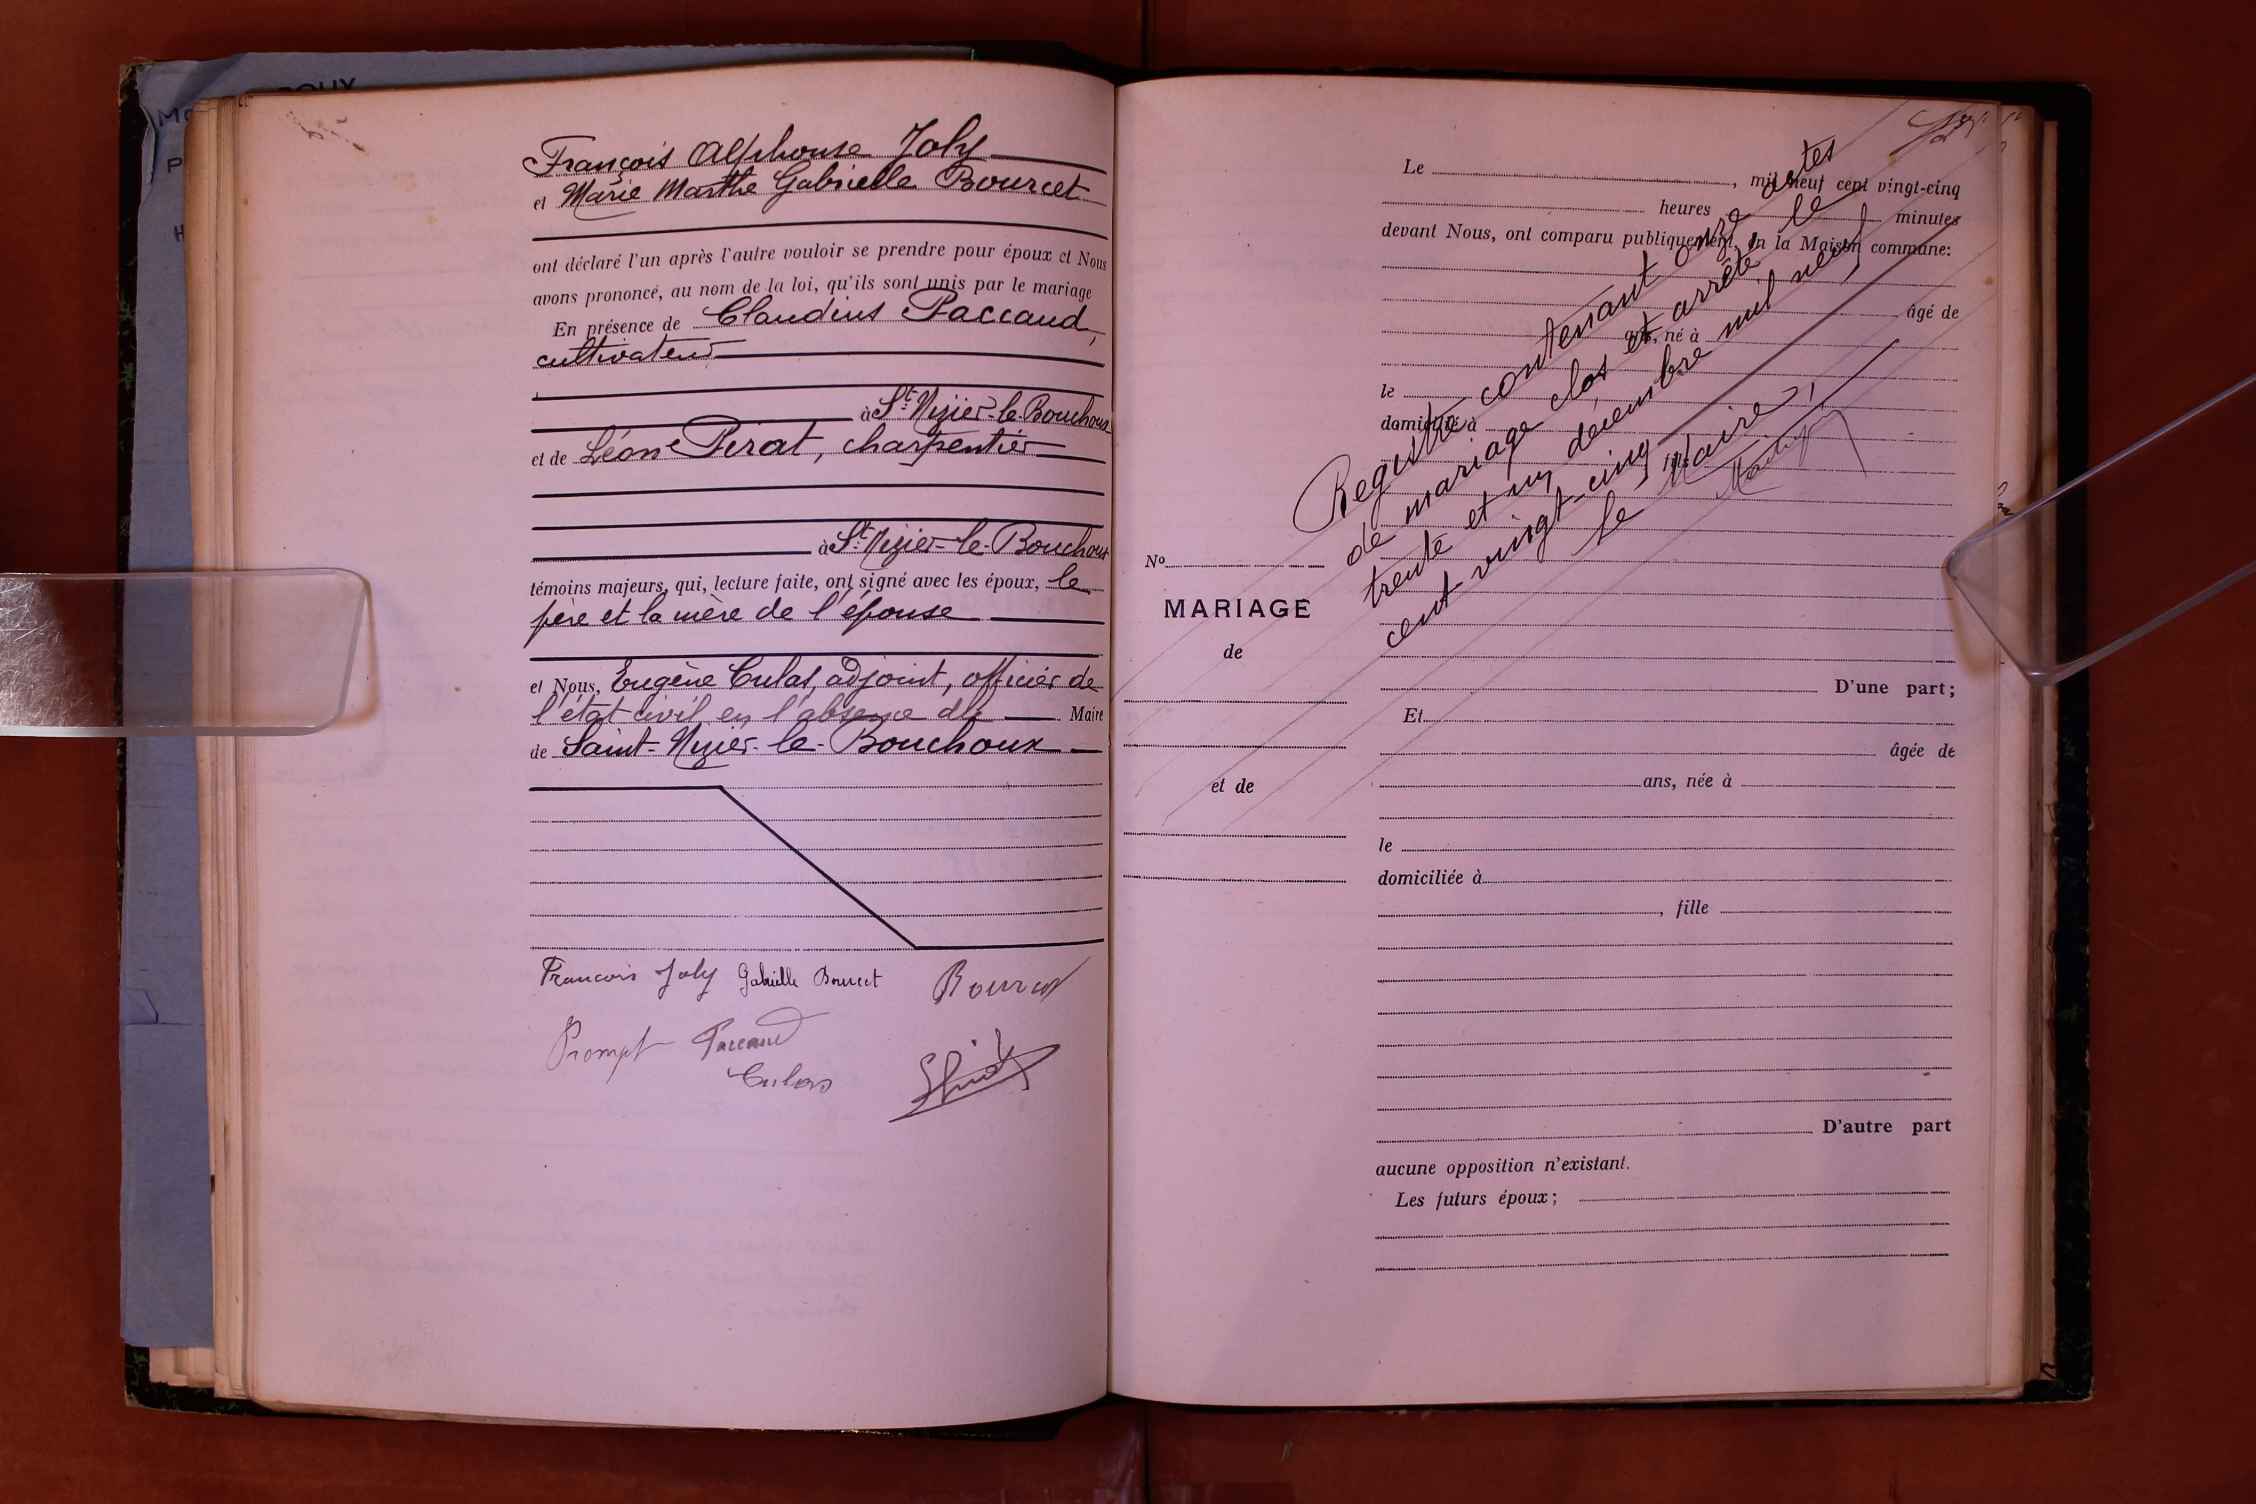 François Alphonse Joly
et Marie Marthe Gabrielle Bourcet
ont déclaré l'un après l'autre vouloir se prendre pour époux et Nous
avons prononcé, au nom de la loi, qu'ils sont unis par le mariage
En présence de Claudius Paccaud,
cultivateur
à St. Nizier-le-Bouchoux
et de Léon Pirat, charpentier
à St. Nizier-le-Bouchoux
témoins majeurs, qui, lecture faite, ont signé avec les époux, le
père et la mère de l'épouse
et Nous, Eugène Culas, adjoint, officier de
l'état civil en l'absence du Maire
de Saint-Nizier-le-Bouchoux
François Joly Gabrielle Bourcet Bourcet
Prompt Paccaud
Culas
Le , mil neuf cent vingt-cinq
heures minutes
devant Nous, ont comparu publiquement, en la Maison commune:
âgé de
ans, né à
le
domicilié à
Registre contenant onze actes
de mariage clos et arrêté le
trente et un décembre mil neuf
cent vingt-cinq
Le Maire,
No
MARIAGE
de
et de
D'une part;
Et
âgée de
ans, née à
le
domiciliée à
, fille
D'autre part
aucune opposition n'existant.
Les futurs époux;